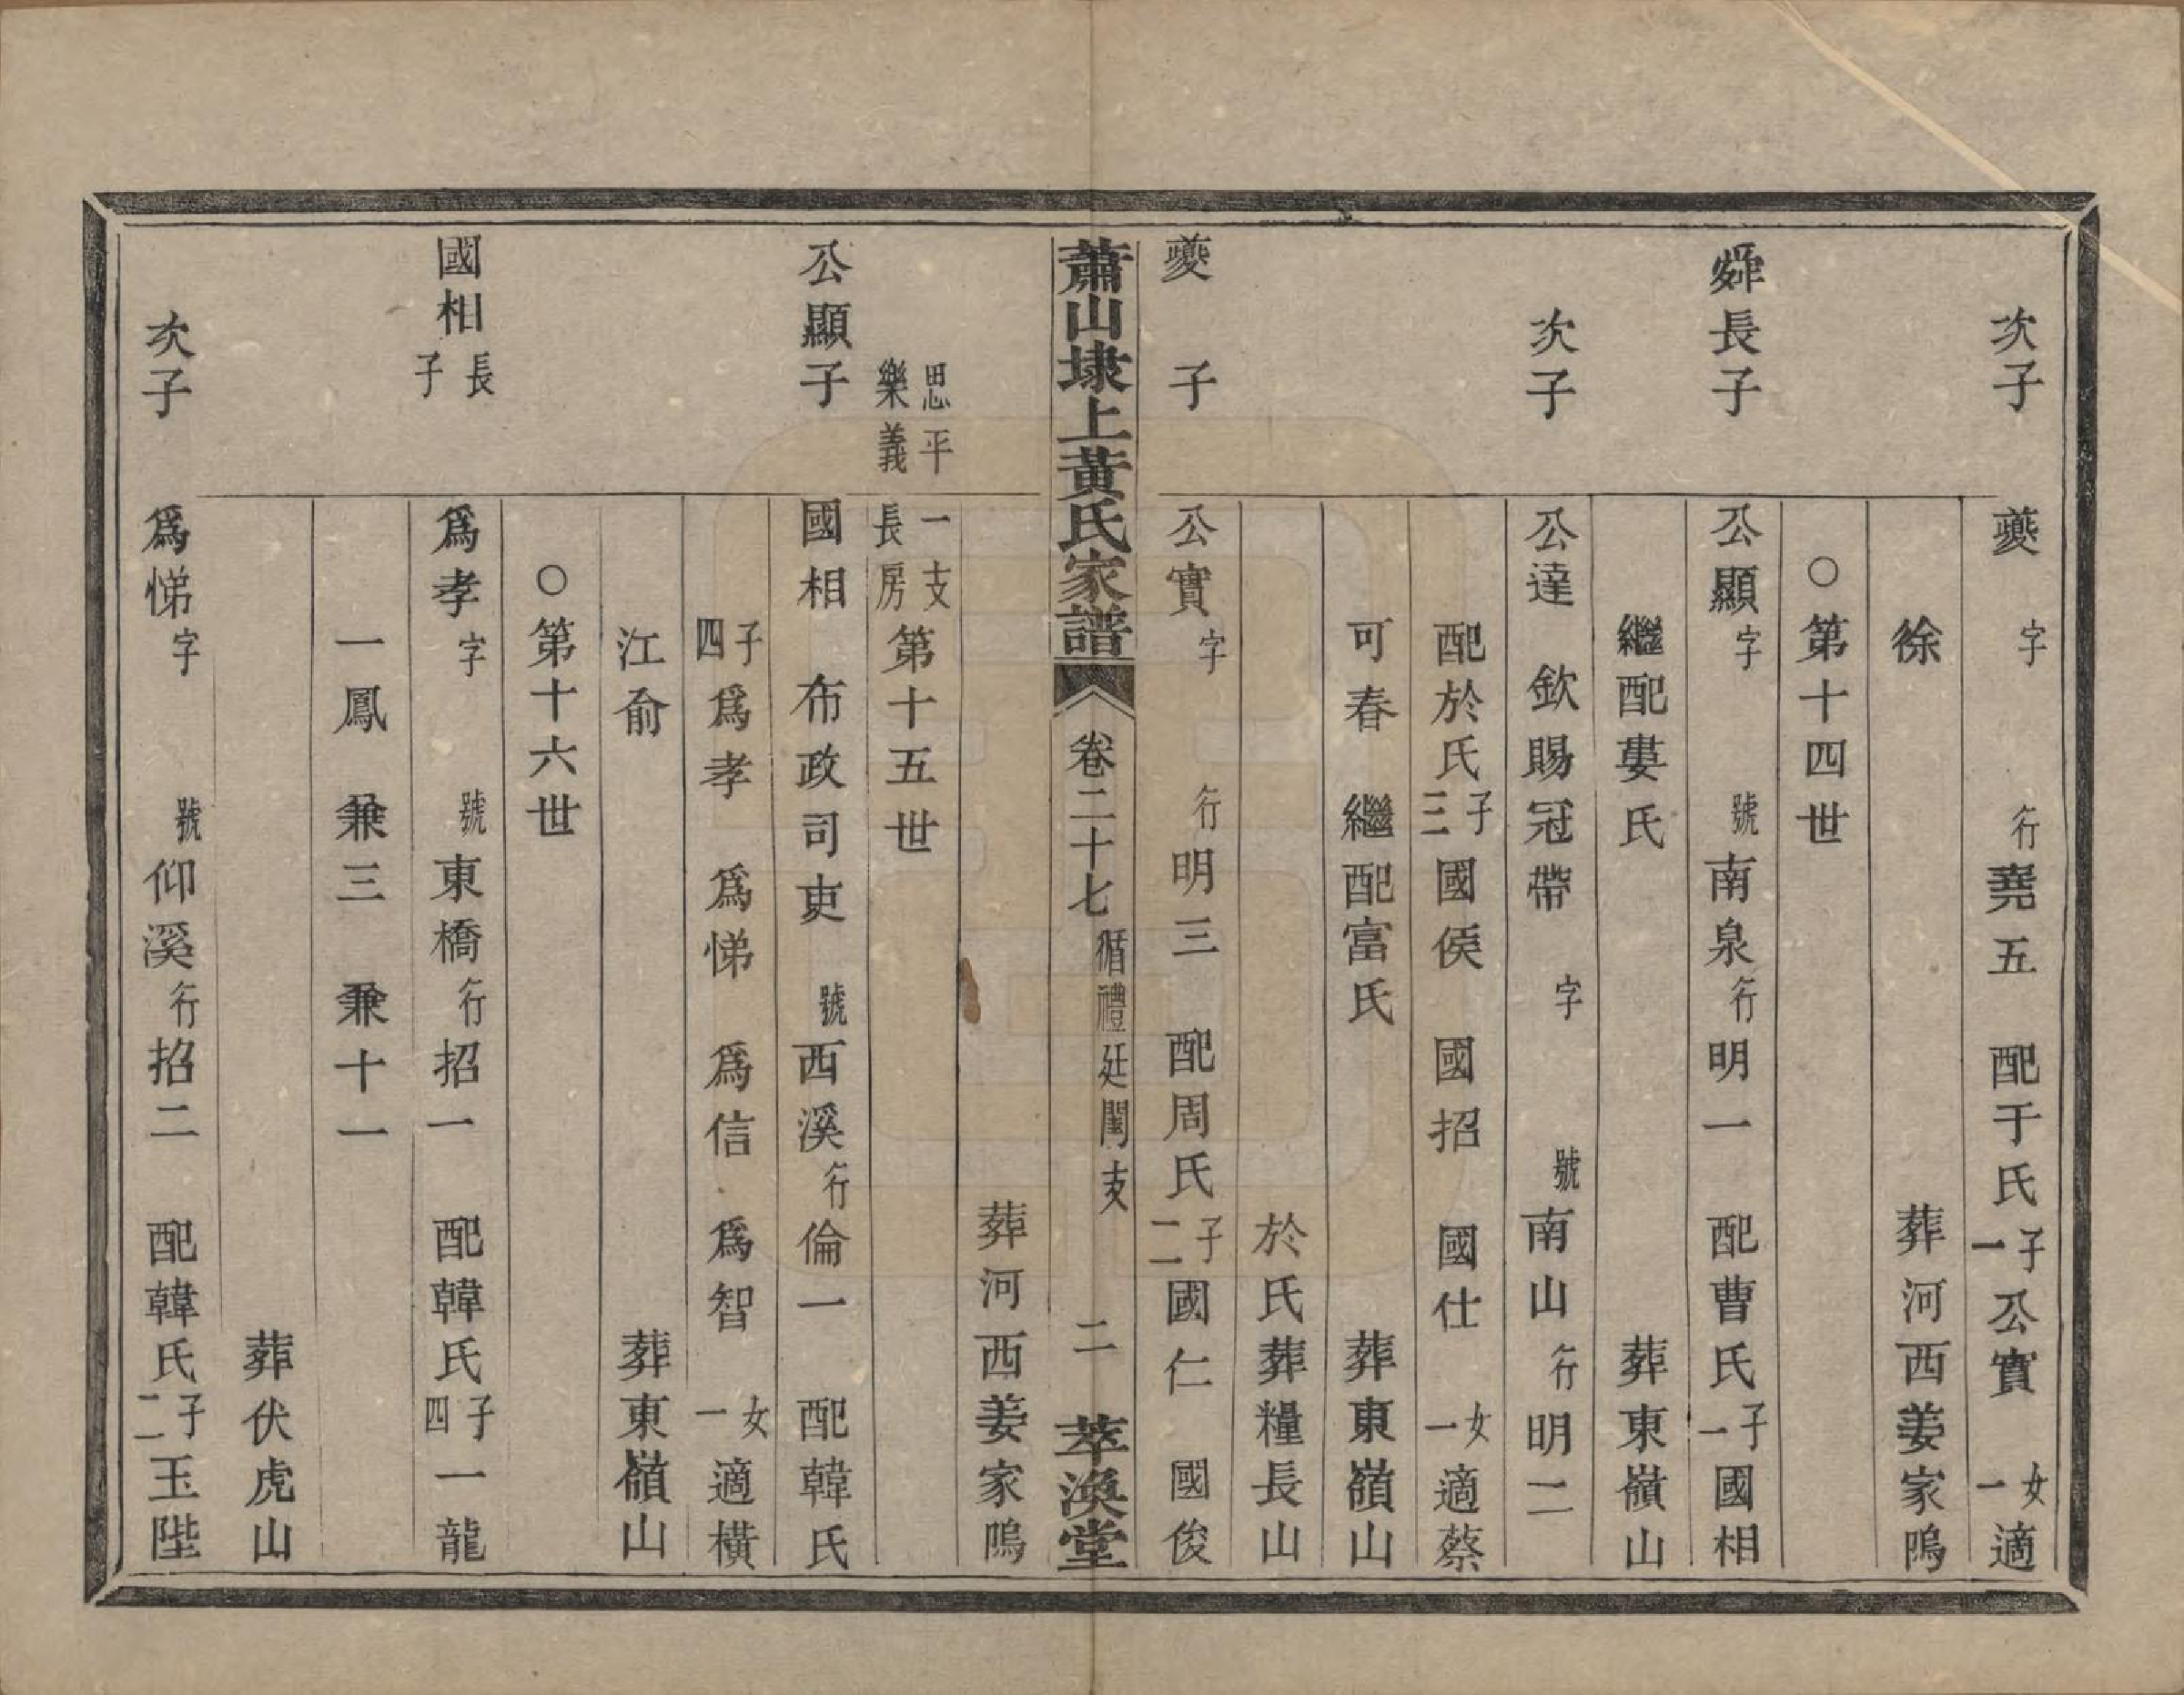 次子 夔 字 行堯五 配于氏 子一 公實 女一適
徐 葬河西姜家嗚
○第十四世
舜長子 公顯 字 號南泉 行明一 配曹氏 子一 國相
繼配婁氏 葬東嶺山
次子 公達 欽賜冠帶 字 號南山 行明二
配於氏 子三 國侯 國招 國仕 女一適蔡
可春 繼配富氏 葬東嶺山
於氏葬糧長山
夔子 公實 字 行明三 配周氏 子二 國仁 國俊
葬河西姜家嗚
蕭山埭上黃氏家譜 卷二十七 循禮廷閏支 二 萃渙堂
思平樂義 一支長房 第十五世
公顯子 國相 布政司吏 號西溪 行倫一 配韓氏
子四 為孝 為悌 為信 為智 女一適橫
江俞 葬東嶺山
○第十六世
國相長子 為孝 字 號東橋 行招一 配韓氏 子四 一龍
一鳳 兼三 兼十一
葬伏虎山
次子 為悌 字 號仰溪 行招二 配韓氏 子二 玉陛